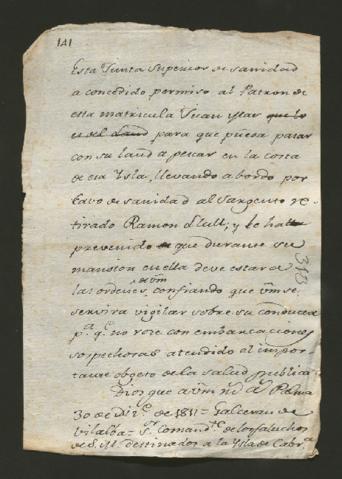 141
Esta Junta Superior de sanidad
a concedido permiso al Patron de
esta matricula Juan
para que pueda pasar
con su laud a pescar en la costa
de esa Ysla, llevando abordo por
Cavo de sanidad al Sargento re-
tirado Ramon Llull; y he
prevenido que durante su
mansion en ella deve estar a
las ordenes de Vm confiando que Vm se
servira vigilar sobre su conducta
pa. qe. no roze con embarcaciones
sospechosas atendido el impor-
tante objeto de la salud publica
Dios gue a Vm ms. as. Palma
30 de Dize. de 1811 = Galceran de
Vilalba = Sr. Comandte. de los faluchos
de S. M. destinados a la Ysla de Cabra.
313